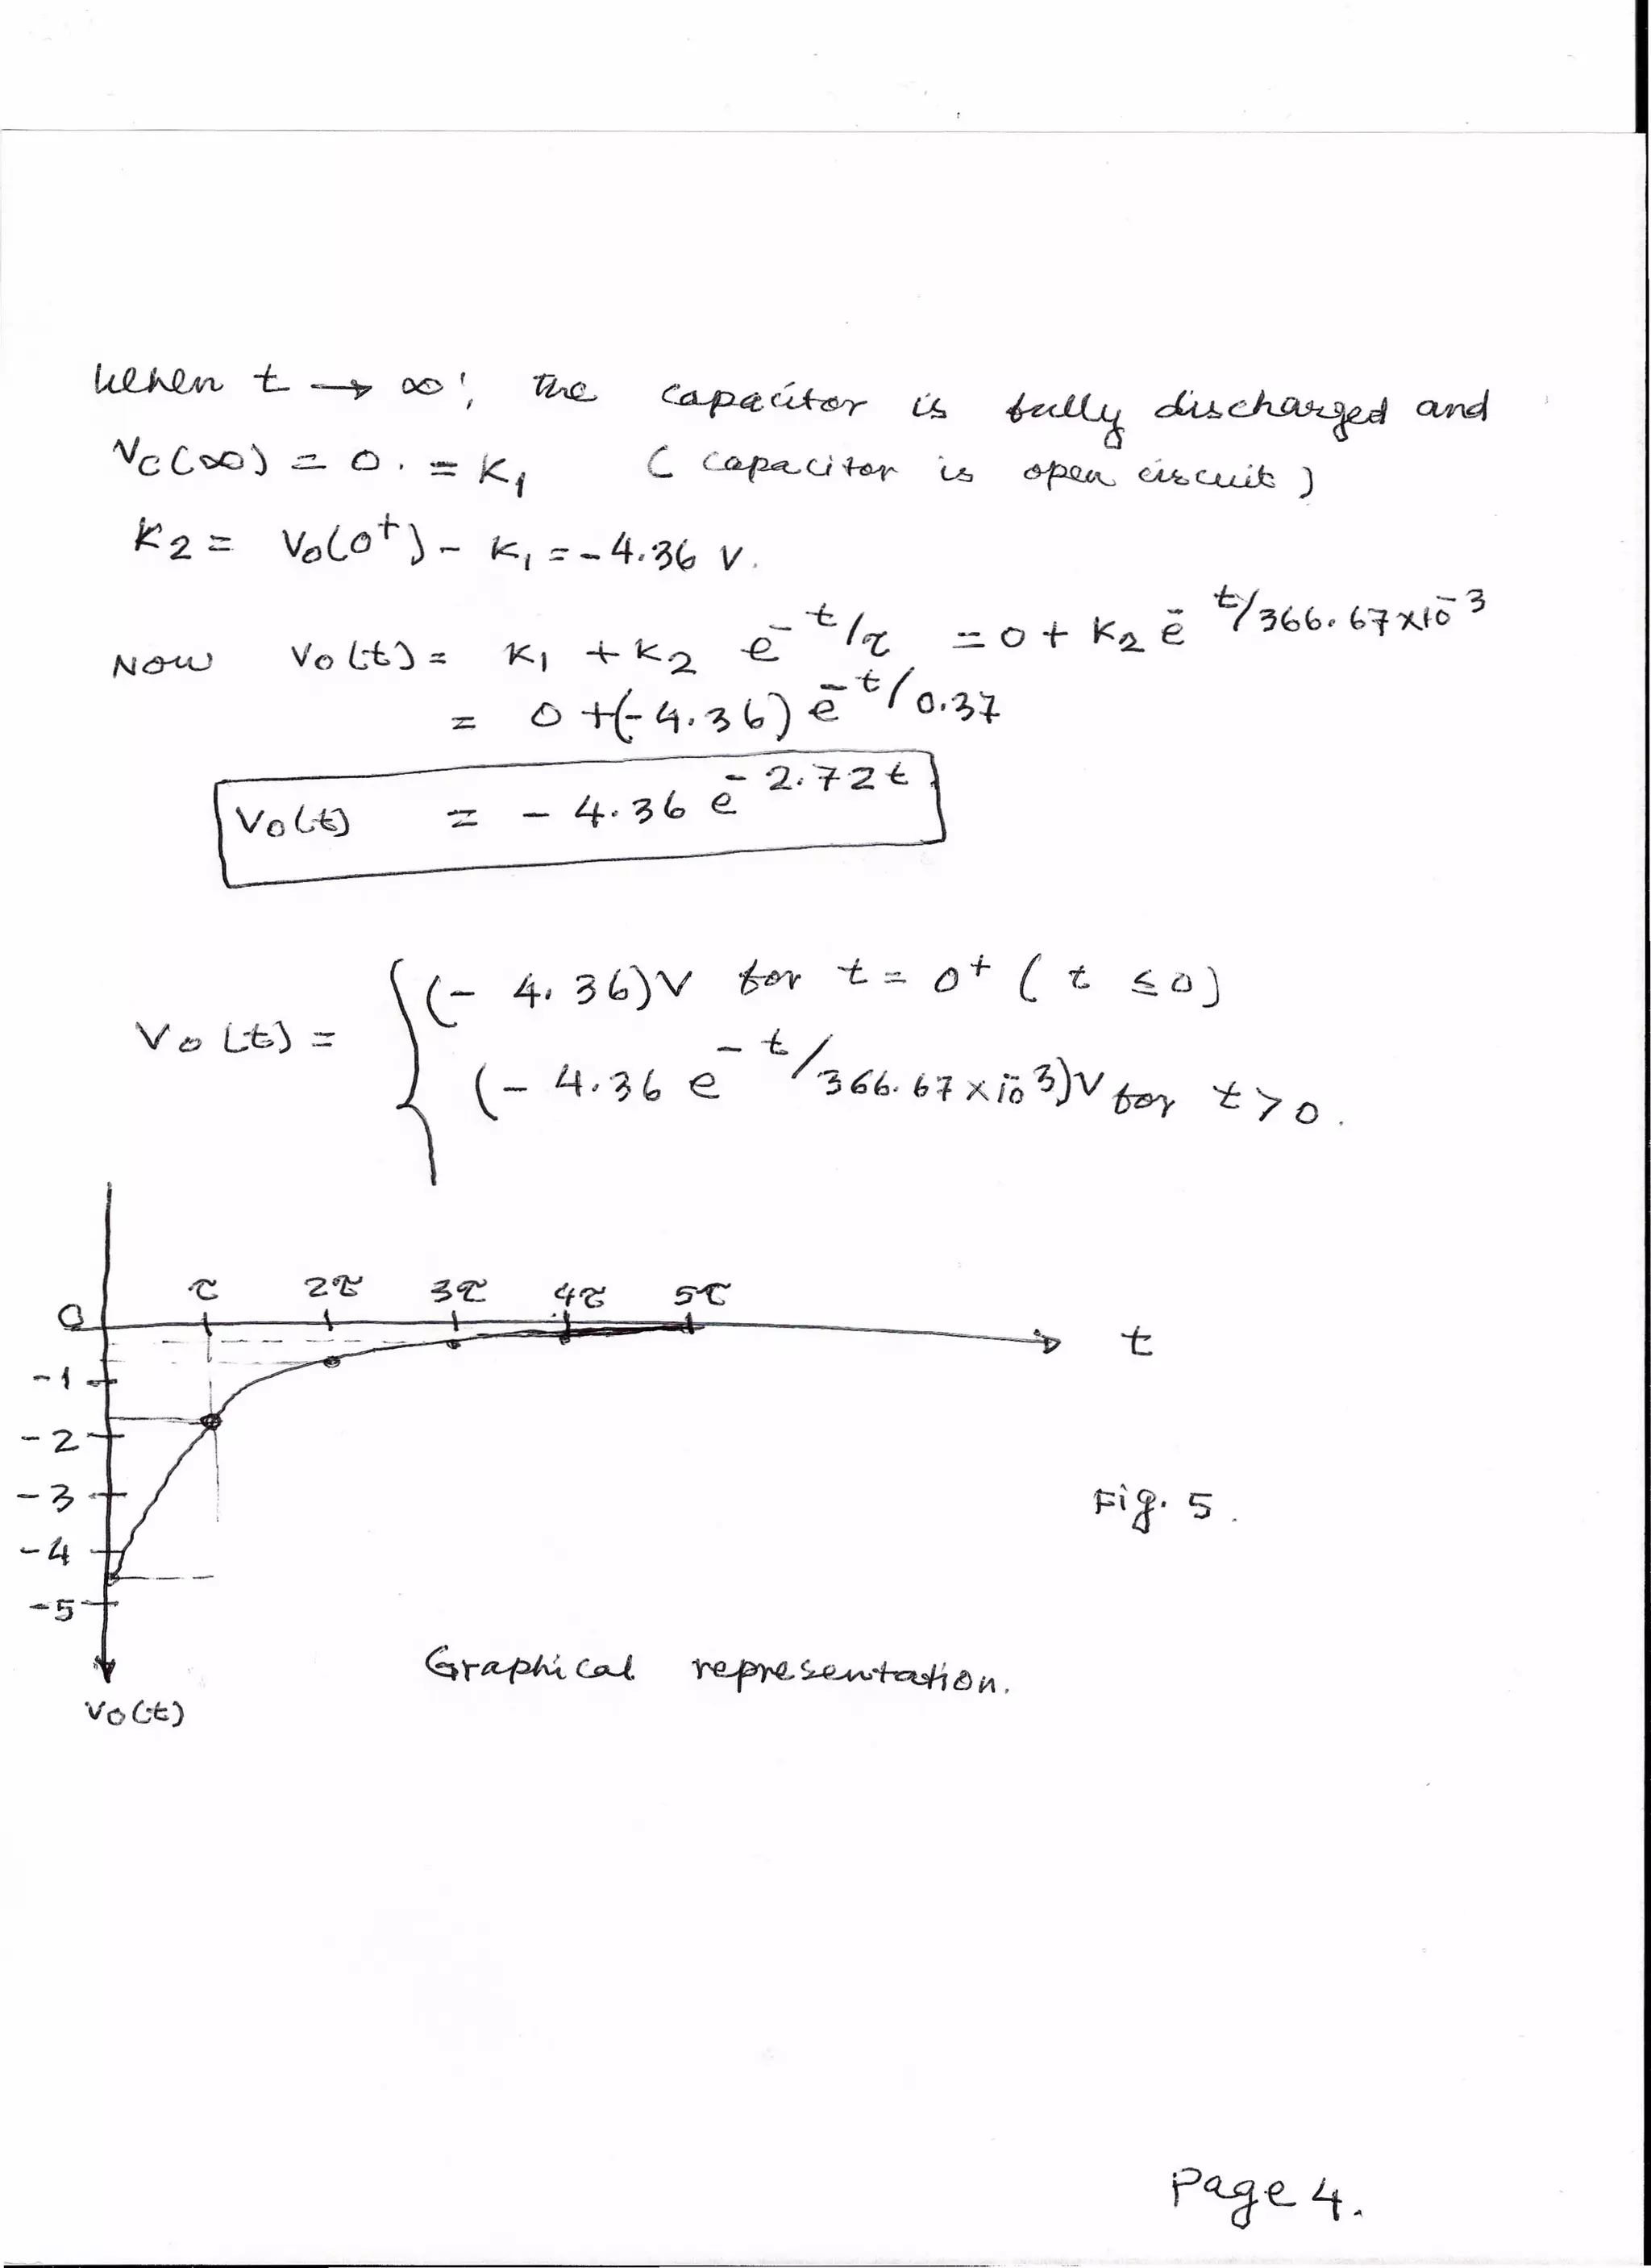 When t → ∞; the capacitor is fully discharged and
Vc(∞) = 0. = K₁ ( capacitor is open circuit )
K₂ = Vo(0⁺) - K₁ = -4.36 V.
NOW Vo(t) = K₁ + K₂ e^-t/τ = 0 + K₂ e^-t/366.67×10^-3
= 0 + (-4.36) e^-t/0.37
Vo(t) = - 4.36 e^-2.72t
(- 4.36)V for t = 0⁺ ( t ≤ 0)
Vo(t) =
(- 4.36 e^-t/366.67×10^-3)V for t > 0.
τ 2τ 3τ 4τ 5τ
0
t
-1
-2
-3
Fig. 5.
-4
-5
Graphical representation.
Vo(t)
Page 4.